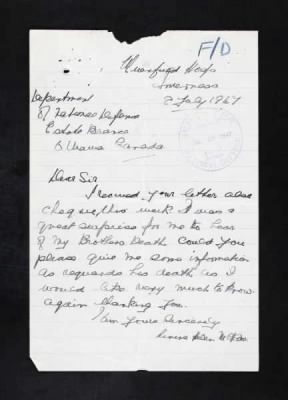 F/D
Inverness
2 July 1947
Department
of National Defence
Estate Branch
Ottawa Canada
Dear Sir
I received your letter also
cheque this week it was a
great surprise for me to hear
of my Brothers Death Could you
please give me some information
as regards his death as I
would like very much to know
again thanking you.
I am yours Sincerely